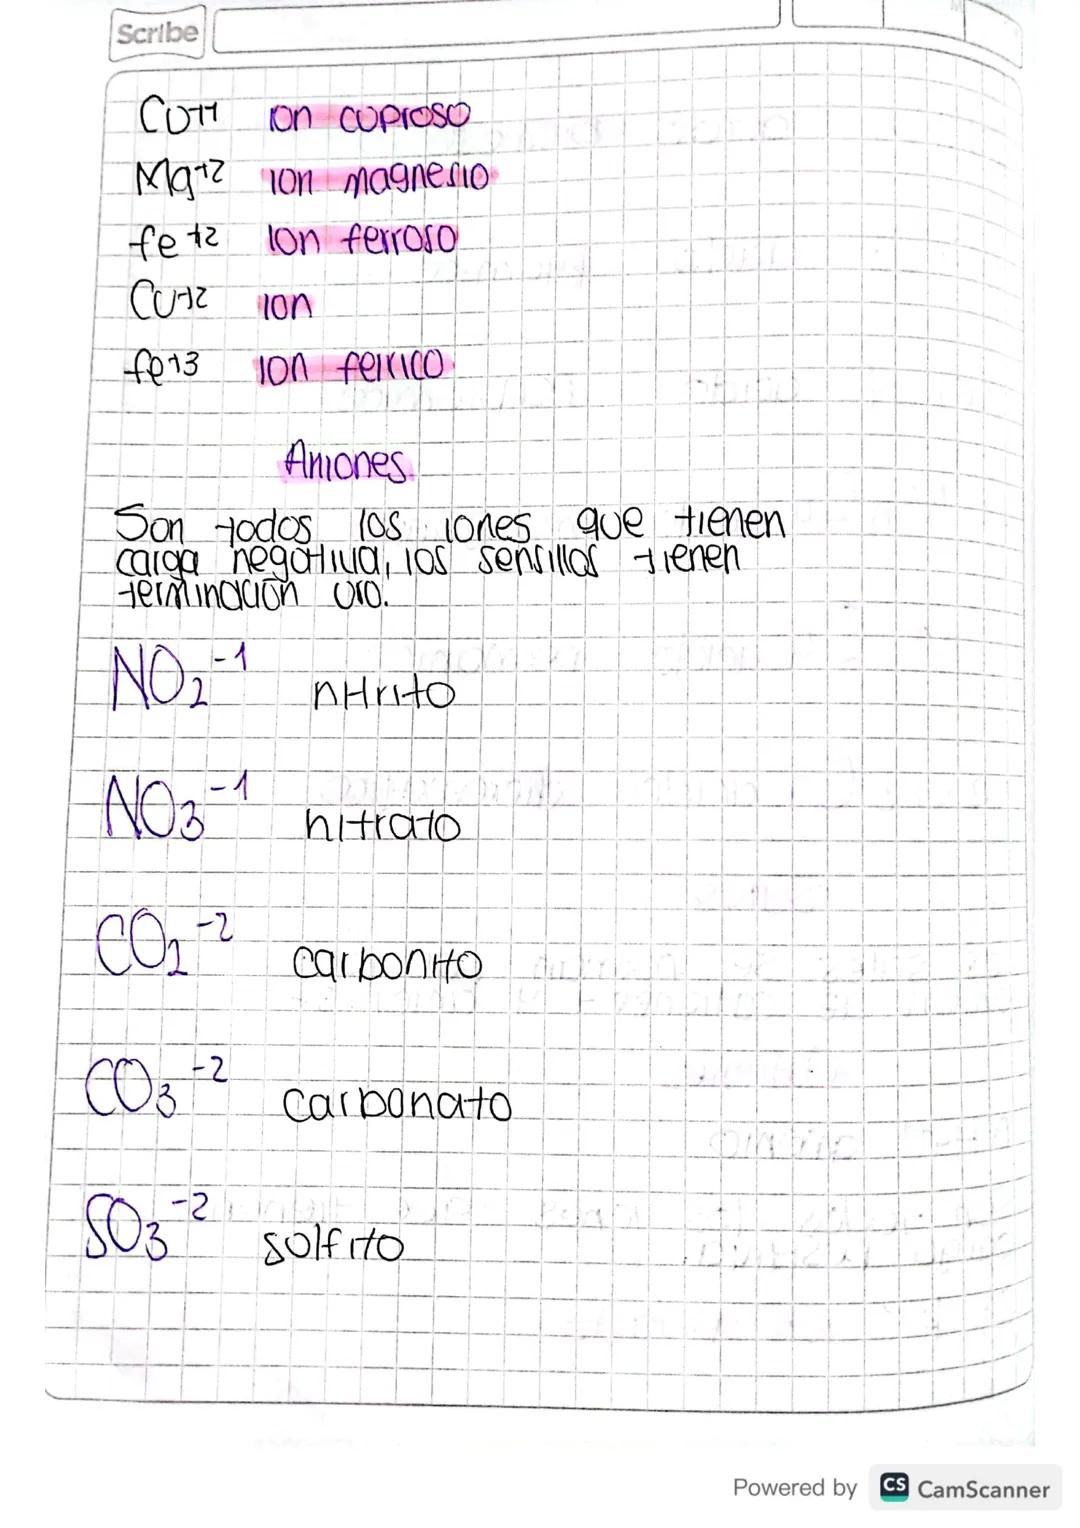 Scribe
Cu+1 ion cuproso
Mg+2 ion magnesio
fe+2 ion ferroso
Cu+2 ion
fe+3 ion ferrico
Aniones.
Son todos los iones que tienen
carga negativa, los sensillos tienen
terminación uro.
NO₂⁻¹ nitrito
NO₃⁻¹ nitrato
CO₂⁻² carbonito
CO₃⁻² carbonato
SO₃⁻² solfito
Powered by CS CamScanner